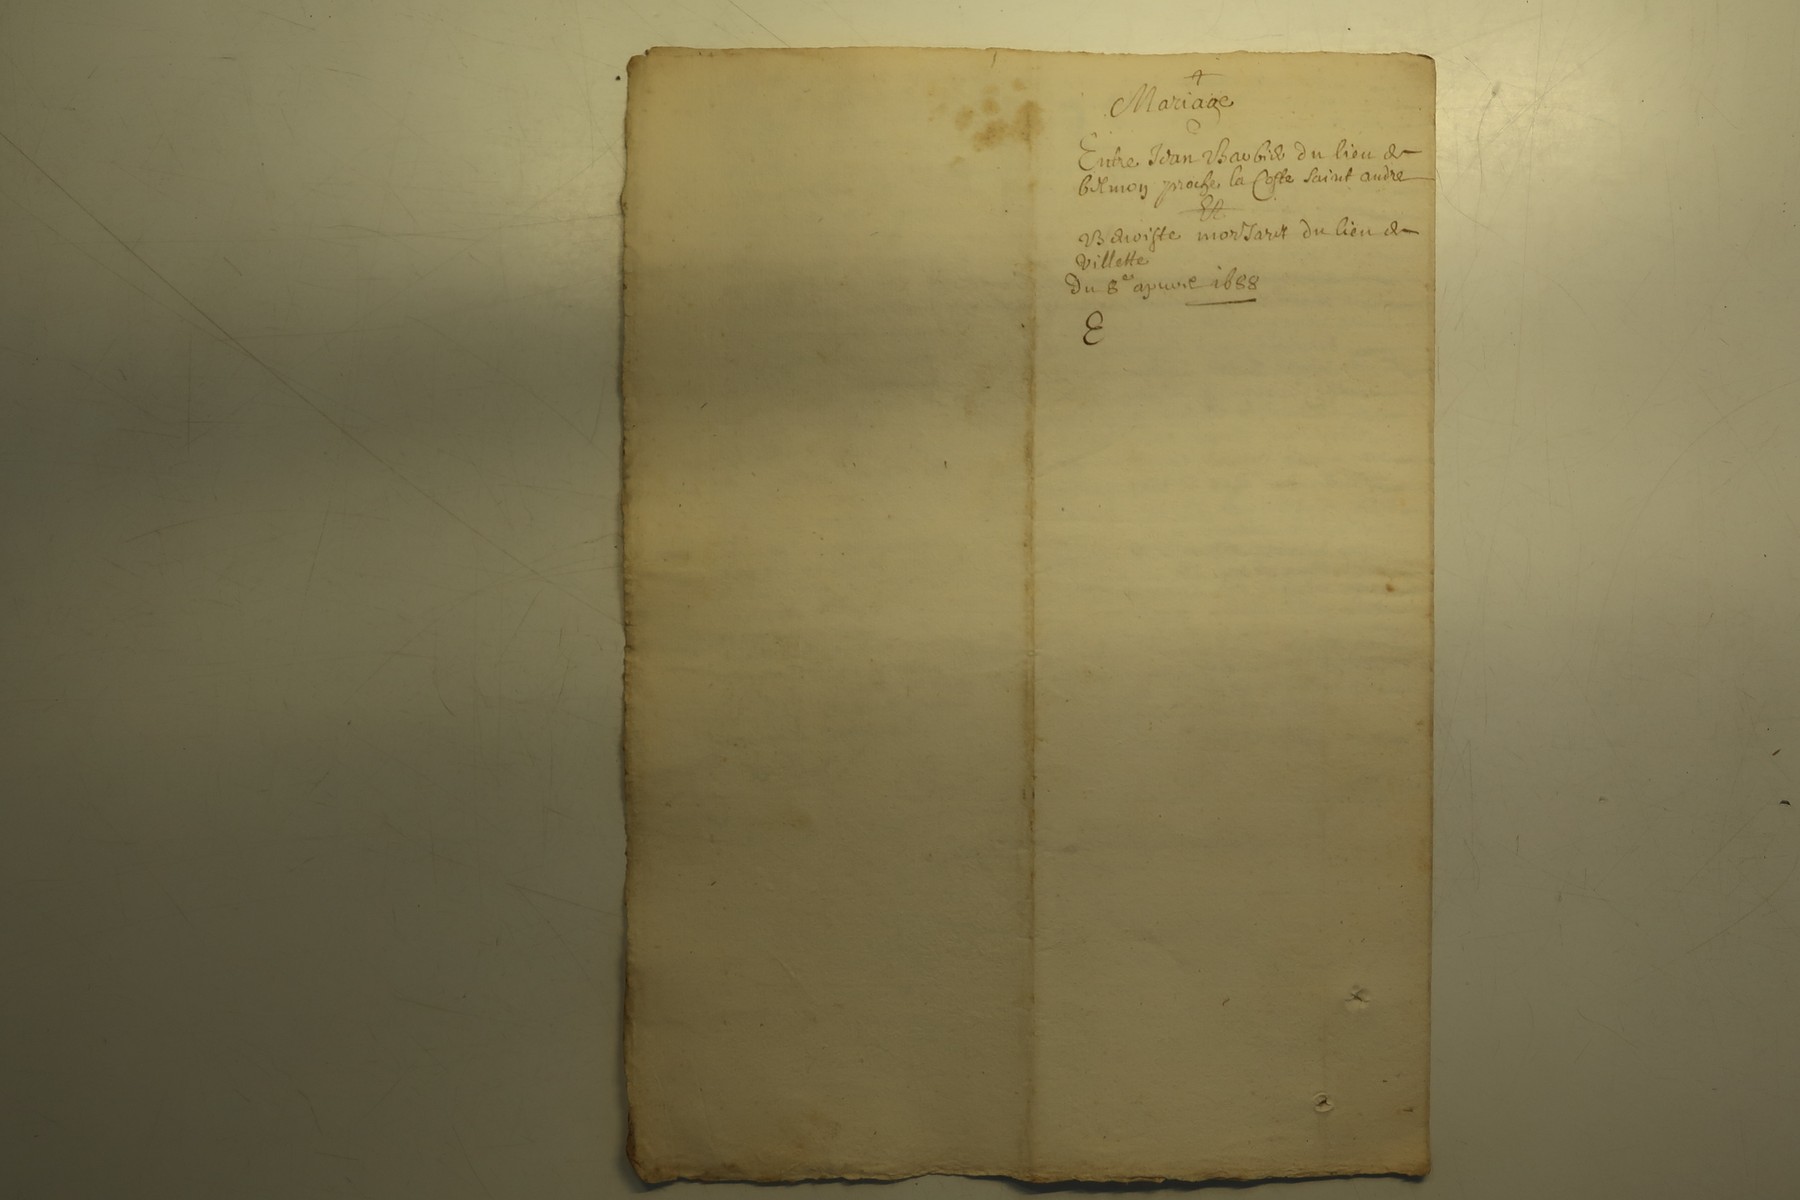 Mariage
Entre Jean Barbier du lieu de
belmon proche la Coste saint andre
Et
Benoiste du lieu de
villette
du 8e 1688
E